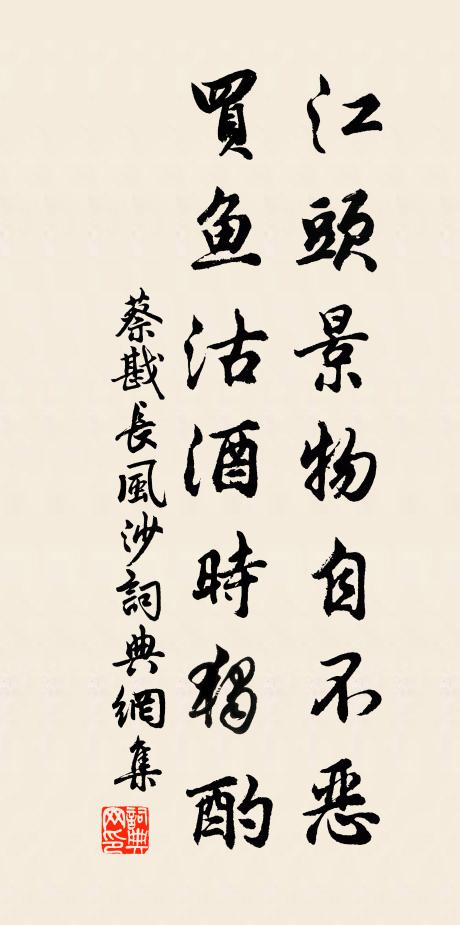 江頭景物自不惡
買鱼沽酒時獨酌
蔡戡長風沙詞典網集
詞典网印